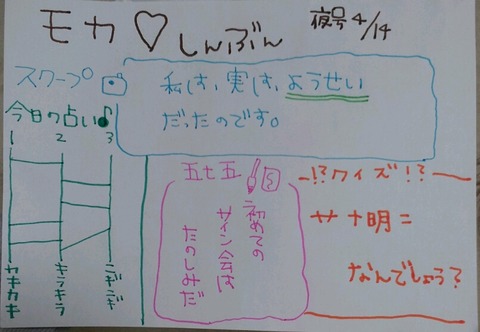 モカ♡しんぶん
夜号4/14
スクープ
私は、実は、ようせい
だったのです。
今日の占い♪
1 2 3
カキカキ
キラキラ
五七五
初めての
サイン会は
たのしみだ
!?クイズ!?
サ十明=
なんでしょう?